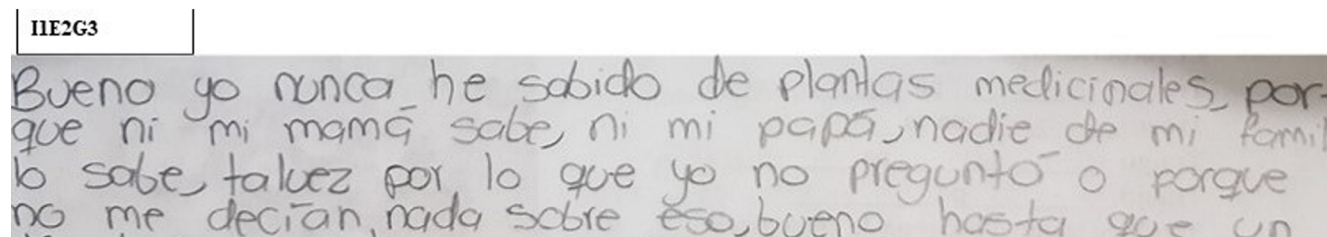 I1E2G3
Bueno yo nunca he sabido de plantas medicinales, por-
que ni mi mamá sabe, ni mi papá, nadie de mi famil
lo sabe, talvez por lo que yo no pregunto o porque
no me decían nada sobre eso, bueno hasta que un